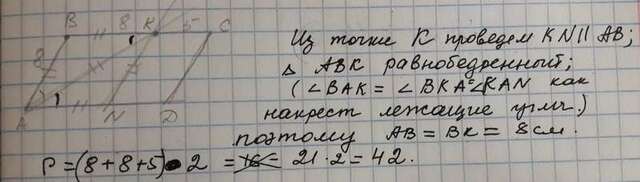 B 8 K 5 C
8
1
A N D
Из точки K проведем KN || AB;
△ ABK равнобедренный;
(∠BAK = ∠BKA = ∠KAN как
накрест лежащие углы.)
поэтому AB = BK = 8 см.
P = (8 + 8 + 5) • 2 = 21 · 2 = 42.